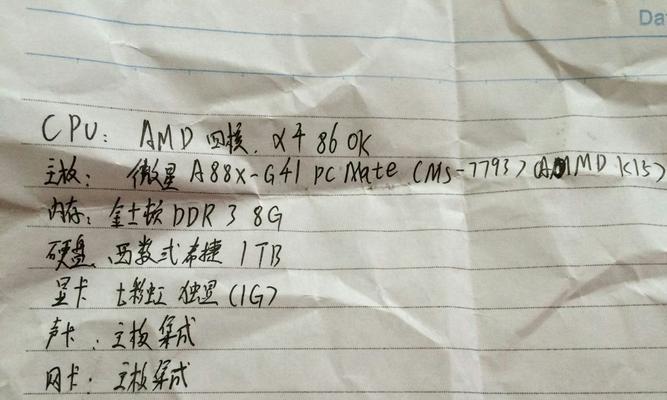 Da
CPU: AMD 四核. x4 860K
主板: 微星 A88X-G41 PC Mate (MS-7793) (AMD K15)
内存: 金士顿 DDR 3 8G
硬盘 西数或希捷 1TB
显卡 七彩虹 独显 (1G)
声卡: 主板集成
网卡: 主板集成